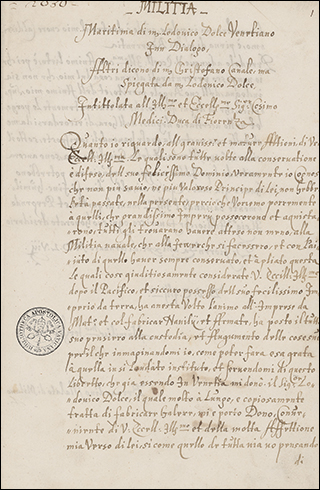 MILITIA
Maritima di m. Lodovico Dolce Venetiano
Inn Dialogo,
Altri dicono di m. Christofano Canale, ma
Spiegata da m. Lodovico Dolce,
Intitolata all Ill.mo et Eccell.mo Sig.r Cosimo
Medici Duca di Fiorenza
Quanto io riguardo, all gravissime et mature Attioni di V.
Eccll. Ill.ma le quali sono tutte volte alla conservatione
e difesa, dell suo felicissimo Dominio, Veramente io conosco
che non più savio, ne più Valoroso Principe di lei, non hebbe
l'età passata, nella presente, percioche Veriamo
quelli, che grandissimi Imperii possederono et
rono, tutti gli trovarono havere atteso non meno alla
Militia navale, che alla terrestre
di quello haver sempre conservato, et
Le quali cose giuditiosamente considerate V. Eccll. Ill.ma
dopo il Pacifico, et sicuro possesso dell suo felicissimo Im-
perio da terra, ha anesta Volto l'animo all' Imprese da
Mare, et col fabricar Navilii, et Armate, ha posto il tutto
suo pensiero alla custodia, et Augumento delle cose sue
perilche inmaginandomi io, come poter fare cosa grata
la quella in si laudato instituto, et servendomi di questo
Libretto, che già essendo in Venetia mi donò il Sig.r Lo-
dovico Dolce, il quale molto à lungo, e copiosamente
tratta di fabricare Galere, mi è porso Dono, conve-
niente di V. Eccell. Ill.ma et della molta Affettione
mia Verso di lei, si come quello che tutta via vo pensando
di